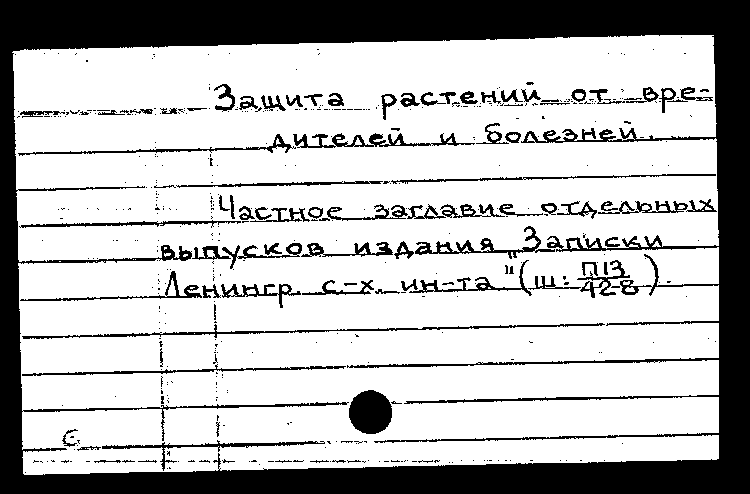 Защита растений от вре-
дителей и болезней.
Частное заглавие отдельных
выпусков издания „Записки
Ленингр. с.-х. ин-та" (ш: П13/42-8).
с